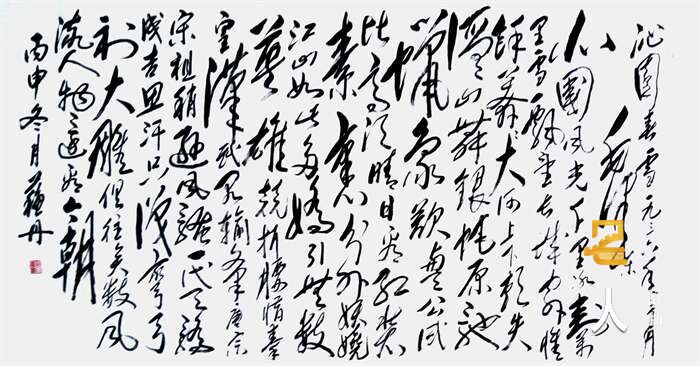 沁園春雪 一九三六年二月
毛泽东
北國風光千里冰封萬
里雪飘望长城内外惟
馀莽莽大河上下顿失
滔滔山舞銀蛇原馳
蠟象欲與天公試
比高须晴日看红装
素裹分外妖嬈
江山如此多嬌引無數
英雄競折腰惜秦
皇漢武略输文采唐宗
宋祖稍遜風骚一代天驕
成吉思汗只识弯弓
射大雕俱往矣数風
流人物还看今朝
丙申冬月蘇丹